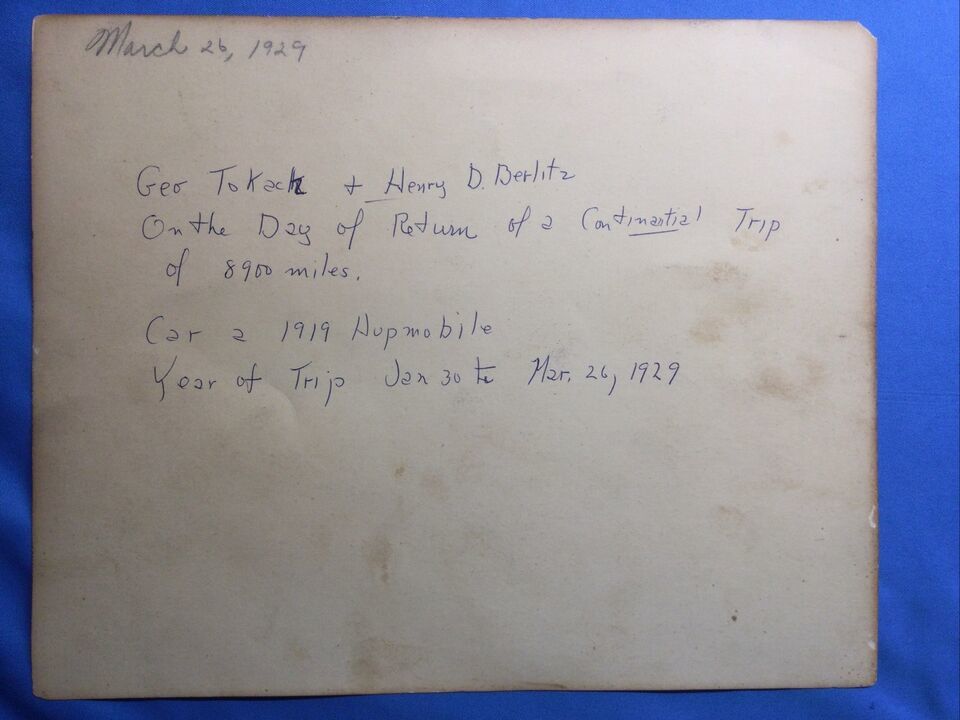 March 26, 1929
Geo Tokach + Henry D. Berlitz
On the Day of Return of a Continantial Trip
of 8900 miles.
Car a 1919 Hupmobile
Year of Trip Jan 30 to Mar. 26, 1929